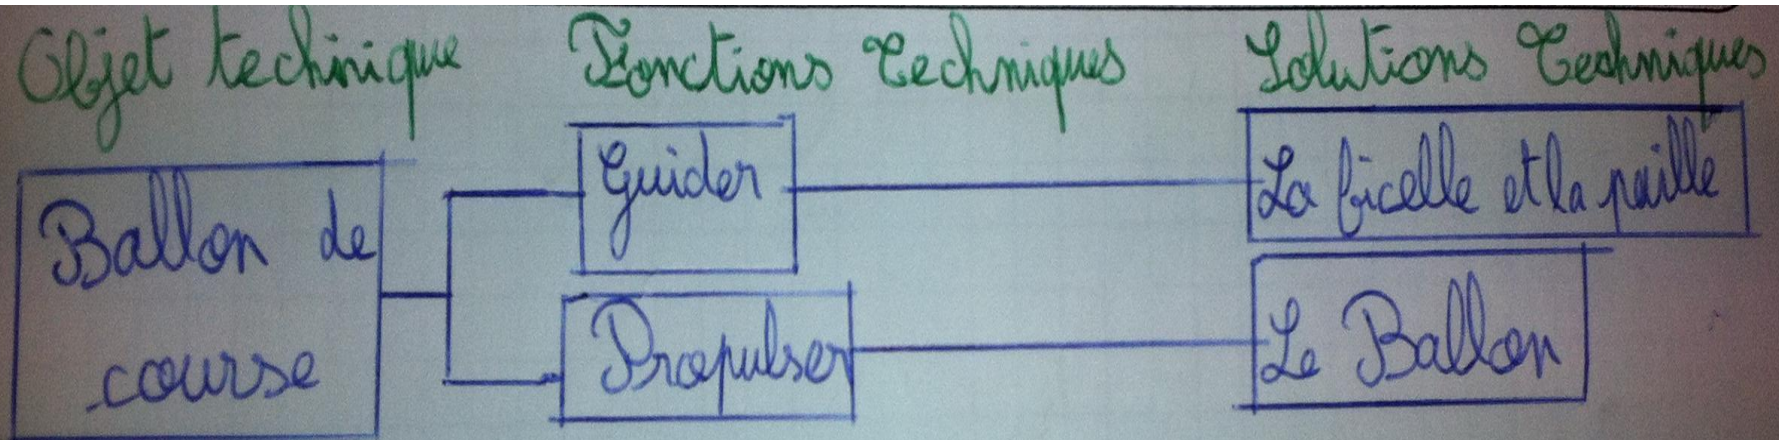 Objet techinique
Fonctions Techniques
Solutions Techniques
Ballon de
course
Guider
La ficelle et la paille
Propulser
Le Ballon